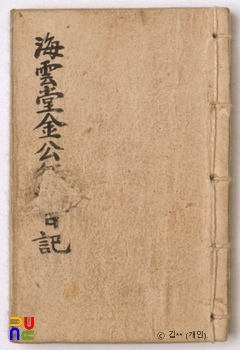 海雲堂金公
日記
© 김** (개인)